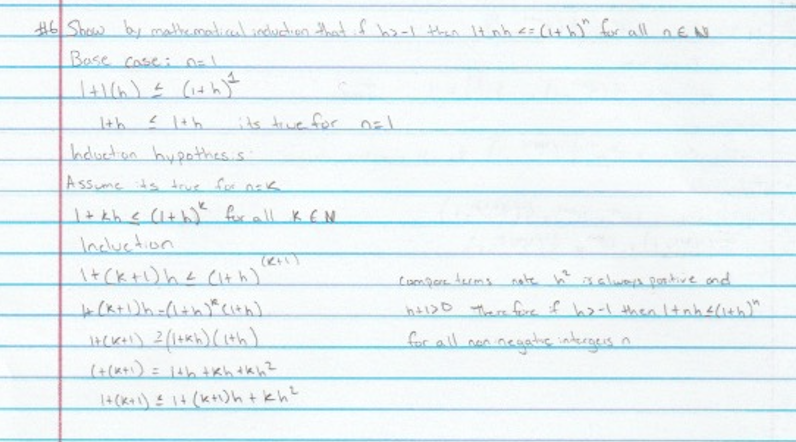 #6 Show by mathematical induction that if h>-1 then 1+nh <= (1+h)^n for all n ∈ N
Base case: n=1
1+1(h) ≤ (1+h)^1
1+h ≤ 1+h its true for n=1
Induction hypothesis:
Assume its true for n=k
1+kh ≤ (1+h)^k for all K ∈ N
Induction
1+(k+1)h ≤ (1+h)^(k+1)
1+(k+1)h = (1+h)^k (1+h)
1+(k+1) ≥ (1+kh)(1+h)
1+(k+1) = 1+h+kh+kh^2
1+(k+1) ≤ 1+(k+1)h+kh^2
compare terms note h^2 is always positive and
h+1>0 Therefore if h>-1 then 1+nh ≤ (1+h)^n
for all non negative intergers n